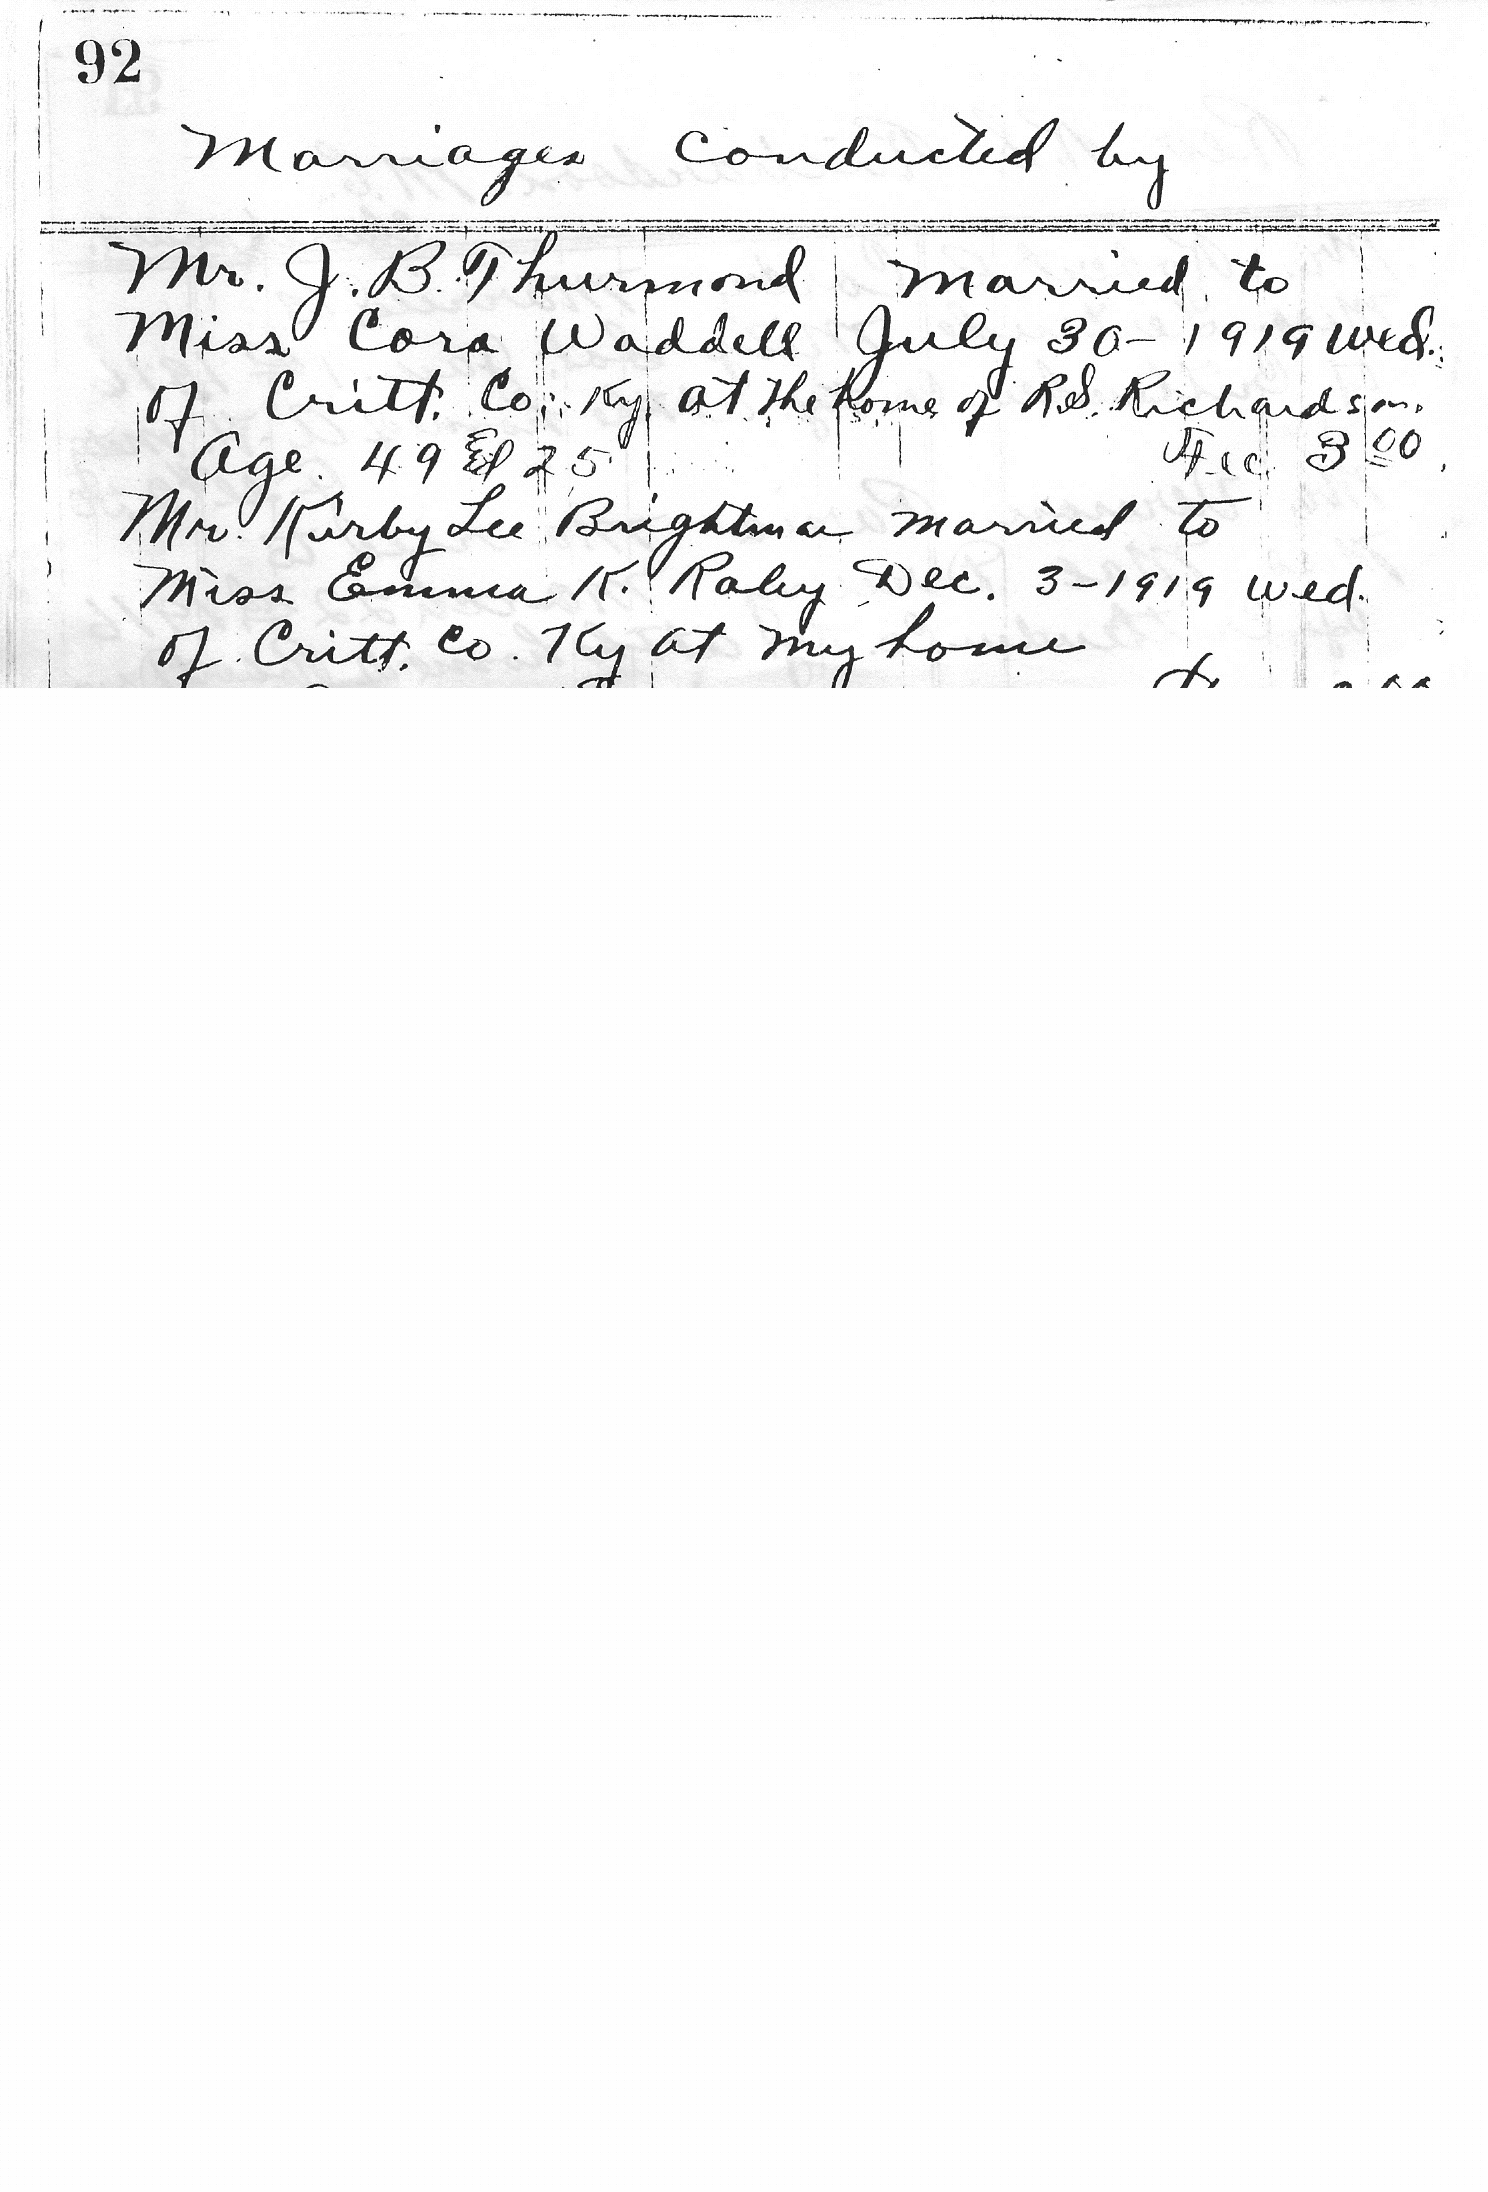 92
Marriages Conducted by
Mr. J. B. Thurmond Married to
Miss Cora Waddell July 30 - 1919 Wed.
of Critt. Co. Ky. at the home of R.S. Richardson.
Age 49 & 25 Fee 3 00
Mr. Kirby Lee Brightman married to
Miss Emma K. Raley Dec. 3 - 1919 Wed.
of Critt. Co. Ky at my home